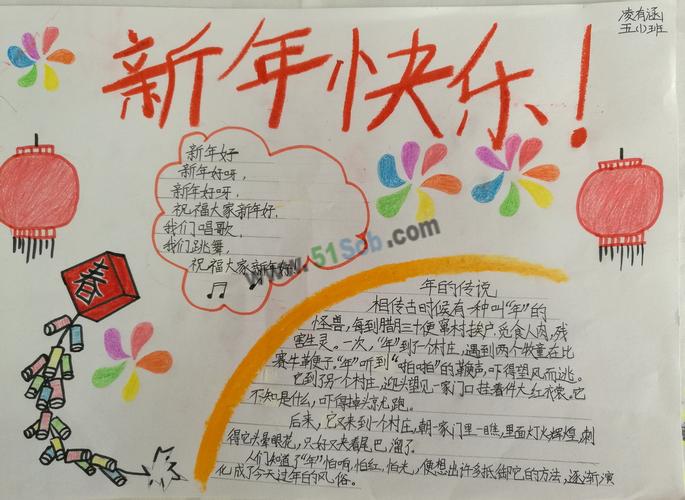 凌有涵
五(1)班
新年快乐!
新年好
新年好呀,
新年好呀,
祝福大家新年好.
我们唱歌,
我们跳舞,
祝福大家新年好!
www.51Sob.com
春
年的传说
相传古时候有一种叫“年”的
怪兽,每到腊月三十便窜村挨户,觅食人肉,残
害生灵。一次,“年”到了一个村庄,遇到两个牧童在比
赛牛革便子.“年”听到“啪啪”的鞭声,吓得望风而逃。
它到了另一个村庄,迎头望见一家门口挂着件大红衣裳。它
不知是什么,吓得掉头就跑。
后来,它又来到一个村庄,朝一家门里一瞧,里面灯火辉煌,刺
得它头晕眼花,只好又夹着尾巴溜了.
人们知道了“年”怕响,怕红,怕光,便想出许多抵御它的方法,逐渐演
化成了今天过年的风俗。